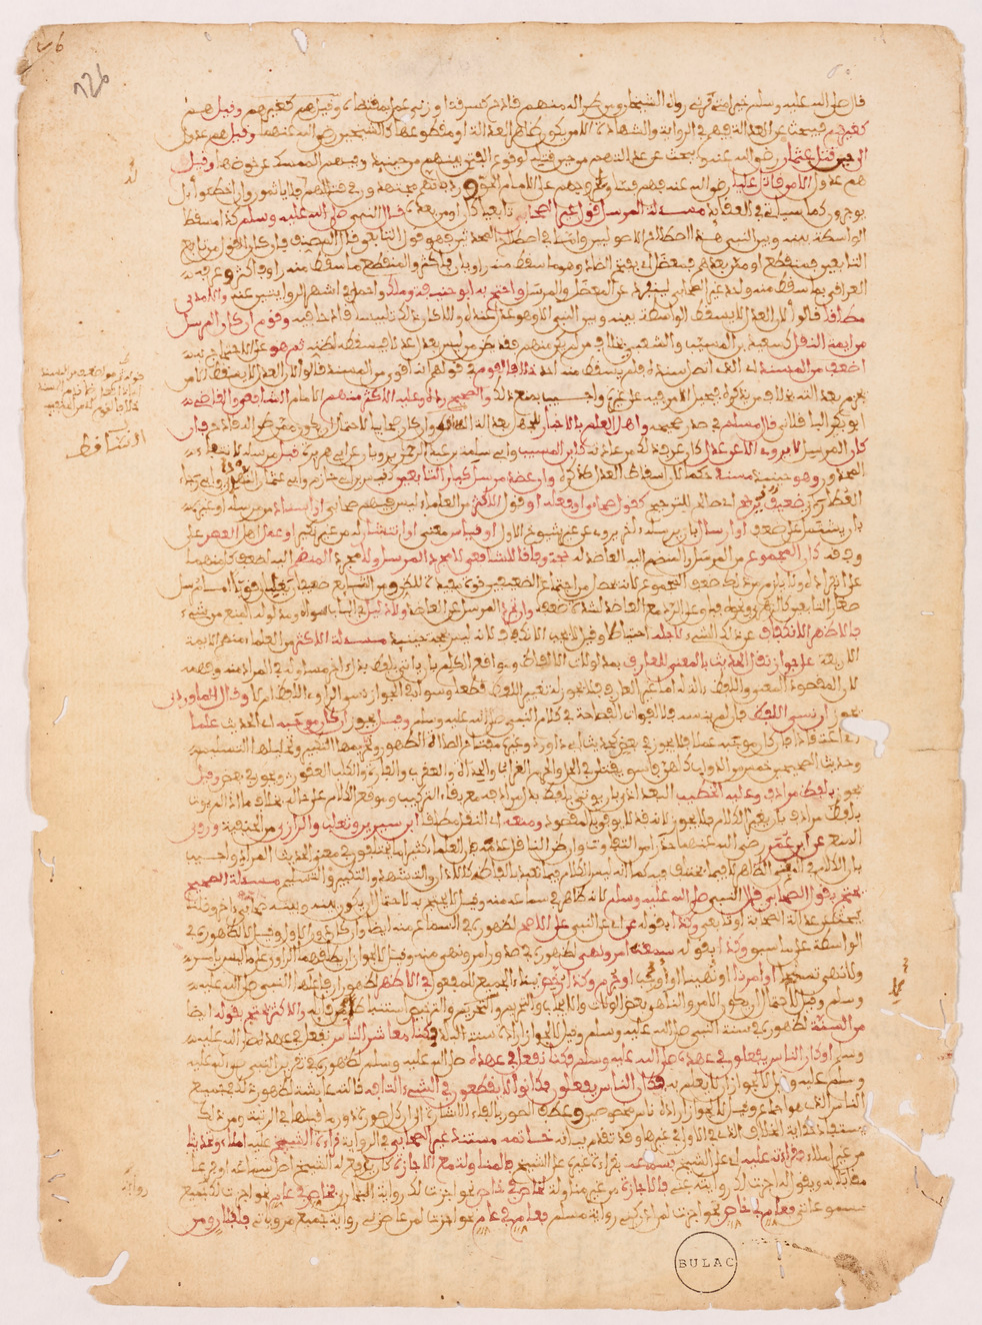 قال صلى الله عليه وسلم خير امتي قرني رواه الشيخان ومن طرأ له منهم قادح كسرقة او زنى عمل بمقتضاه وقيل هم كغيرهم وقيل هم
كغيرهم فيبحث عن العدالة فيهم في الرواية والشهادة الا من يكون ظاهر العدالة او مقطوعها كالشيخين رضي الله عنهما وقيل هم عدول
الى حين قتل عثمان رضي الله عنه ويبحث عن عدالتهم من حين قتله لوقوع الفتن بينهم من حينئذ وفيهم الممسك عن خوضها وقيل
هم عدول الا من قاتل عليا رضي الله عنه فهم فساق لخروجهم على الامام الحق ورد بانهم مجتهدون في قتالهم فلا ياثمون وان اخطئوا بل
يوجرون كما سياتي في العقائد مسئلة المرسل قول غير الصحابي تابعيا كان او من بعده قال النبي صلى الله عليه وسلم كذا مسقطا
الواسطة بينه وبين النبي هذا اصطلاح الاصوليين واما في اصطلاح المحدثين فهو قول التابعي قال المصنف فان كان القول من تابع
التابعين فمنقطع او ممن بعدهم فمعضل اي بفتح الضاد وهو ما سقط منه راويان فاكثر والمنقطع ما سقط منه راو فاكثر وعرفه
العراقي بما سقط منه واحد غير الصحابي لينفرد عن المعضل والمرسل واحتج به ابو حنيفة ومالك واحمد في اشهر الروايتين عنه والامدي
مطلقا قالوا لان العدل لا يسقط الواسطة بينه وبين النبي الا وهو عدل عنده والا كان ذلك تلبيسا قادحا فيه وقوم ان كان المرسل
من ايمة النقل كسعيد بن المسيب والشعبي بخلاف من لم يكن منهم فقد يظن من ليس بعدل عدلا فيسقطه لظنه ثم هو على الاحتجاج به
اضعف من المسند اي الذي اتصل سنده فلم يسقط منه احد خلافا لقوم في قولهم انه اقوى من المسند قالوا لان العدل لا يسقط الا من
يجزم بعدالته بخلاف من يذكره فيحيل الامر فيه على غيره واجيب بمنع ذلك والصحيح رده وعليه الاكثر منهم الامام الشافعي والقاضي
ابو بكر الباقلاني قال مسلم في صدر صحيحه واهل العلم بالاخبار للجهل بعدالة الساقط وان كان صحابيا لاحتمال ان يكون ممن طرأ له قادح فان
كان المرسل لا يروي الا عن عدل كان عرف ذلك من عادته كابن المسيب وابي سلمة بن عبد الرحمن يرويان عن ابي هريرة قبل مرسله لانتفاء
المحذور وهو حينئذ مسند حكما لان اسقاط العدل كذكره وان عضد مرسل كبار التابعين كقيس بن ابي حازم وابي عثمان النهدي وابي رجاء
العطاردي ضعيف يرجح اي صالح للترجيح كقول صحابي او فعله او قول الاكثر من العلماء ليس فيهم صحابي او اسناد من مرسله او غيره
بان يشتمل على ضعف او ارسال بان يرسله اخر يروي عن غير شيوخ الاول او قياس معنى او انتشار له من غير نكير او عمل اهل العصر على
وفقه كان المجموع من المرسل والمنضم اليه العاضد له حجة وفاقا للشافعي لا مجرد المرسل ولا مجرد المنضم اليه لضعف كل منهما
على انفراده ولا يلزم من ذلك ضعف المجموع لانه يحصل من اجتماع الضعيفين قوة مفيدة للظن ومن الشائع ضعيفان يغلبان قويا اما مرسل
صغار التابعين كالزهري ونحوه فباق على الرد مع العاضد لشدة ضعفه وان تجرد المرسل عن العاضد ولا دليل في الباب سواه ومدلوله المنع من شيء
فالاظهر الانكفاف عن ذلك الشيء لاجله احتياطا وقيل لا يجب الانكفاف لانه ليس بحجة حينئذ مسئلة الاكثر من العلماء منهم الايمة
الاربعة على جواز نقل الحديث بالمعنى للعارف بمدلولات الالفاظ ومواقع الكلام بان ياتي بلفظ بدل اخر مساو له في المراد منه وفهمه
لان المقصود المعنى واللفظ الة له اما غير العارف فلا يجوز له تغيير اللفظ قطعا وسواء في الجواز نسي الراوي اللفظ ام لا وقال الماوردي
يجوز ان نسي اللفظ فان لم ينسه فلا لفوات الفصاحة في كلام النبي صلى الله عليه وسلم وقيل يجوز ان كان موجبه اي الحديث علما
اي اعتقادا فان كان موجبه عملا فلا يجوز في بعض كحديث ابي داود وغيره مفتاح الصلاة الطهور وتحريمها التكبير وتحليلها التسليم
وحديث الصحيحين خمس من الدواب كلهن فاسق يقتلن في الحل والحرم الغراب والحداة والعقرب والفارة والكلب العقور ويجوز في بعض وقيل
يجوز بلفظ مرادف وعليه الخطيب البغدادي بان يوتى بلفظ بدل مرادفه مع بقاء التركيب وموقع الكلام على حاله بخلاف ما اذا لم يوت
بلفظ مرادف بان يغير الكلام فلا يجوز لانه قد لا يوفي بالمقصود ومنعه اي النقل مطلقا ابن سيرين وثعلب والرازي من الحنفية وروي
المنع عن ابن عمر رضي الله عنهما حذرا من التفاوت وان ظن الناقل عدمه فان العلماء كثيرا ما يختلفون في معنى الحديث المراد واجيب
بان الكلام في المعنى الظاهر لا فيما يختلف فيه كما انه ليس الكلام فيما تعبد بالفاظه كالاذان والتشهد والتكبير والتسليم مسئلة الصحيح
يحتج بقول الصحابي قال النبي صلى الله عليه وسلم لانه ظاهر في سماعه منه وقيل لا يحتج به لاحتمال ان يكون بينه وبينه صحابي اخر وقلنا
يبحث عن عدالة الصحابة او تابعي وكذا بقوله عن اي عن النبي على الاصح لظهوره في السماع منه ايضا وان كان دون الاول وقيل لا لظهوره في
الواسطة على ما سبق وكذا بقوله سمعته امر ونهى لظهوره في صدور امر ونهي منه وقيل لا لجواز ان يطلقهما الراوي على ما ليس بامر
ولا نهي تسمحا او امرنا او نهينا او اوجب او حرم وكذا رخص ببناء الجميع للمفعول في الاظهر لظهور ان فاعلها النبي صلى الله عليه
وسلم وقيل لا لاحتمال ان يكون الامر والناهي بعض الولاة والايجاب والتحريم والترخيص استنباطا من قائله والاكثر يحتج بقوله ايضا
من السنة لظهوره في سنة النبي صلى الله عليه وسلم وقيل لا لجواز ارادة سنة البلد فكنا معاشر الناس نفعل في عهده صلى الله عليه
وسلم او كان الناس يفعلون في عهده صلى الله عليه وسلم فكنا نفعل في عهده صلى الله عليه وسلم لظهوره في تقرير النبي صلى الله عليه
وسلم عليه وقيل لا لجواز ان لا يعلم به فكان الناس يفعلون فكانوا لا يقطعون في الشيء التافه قالته عايشة لظهور ذلك في جميع
الناس الذي هو اجماع وقيل لا لجواز ارادة ناس مخصوصين وعطف الصور بالفاء للاشارة الى ان كل صورة دون ما قبلها في الرتبة ومن ذلك
يستفاد حكاية الخلاف الذي في الاولى في غيرها وقد تقدم بيانه خاتمة مستند غير الصحابي في الرواية قراءة الشيخ عليه املاء وتحديثا
من غير املاء فقراءته عليه اي على الشيخ فسماعه بقراءة غيره على الشيخ فالمناولة مع الاجازة كان يدفع له الشيخ اصل سماعه او فرعا
مقابلا به ويقول له اجزت لك روايته عني فالاجازة من غير مناولة لخاص في خاص نحو اجزت لك رواية البخاري فخاص في عام نحو اجزت لك جميع
مسموعاتي فعام في خاص نحو اجزت لمن ادركني رواية مسلم فعام في عام نحو اجزت لمن عاصرني رواية جميع مروياتي فلفلان ومن
الساقط
رواية
BULAC